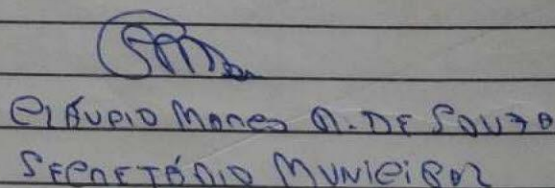 CLÁUDIO MARCOS A. DE SOUZA
SECRETÁRIO MUNICIPAL